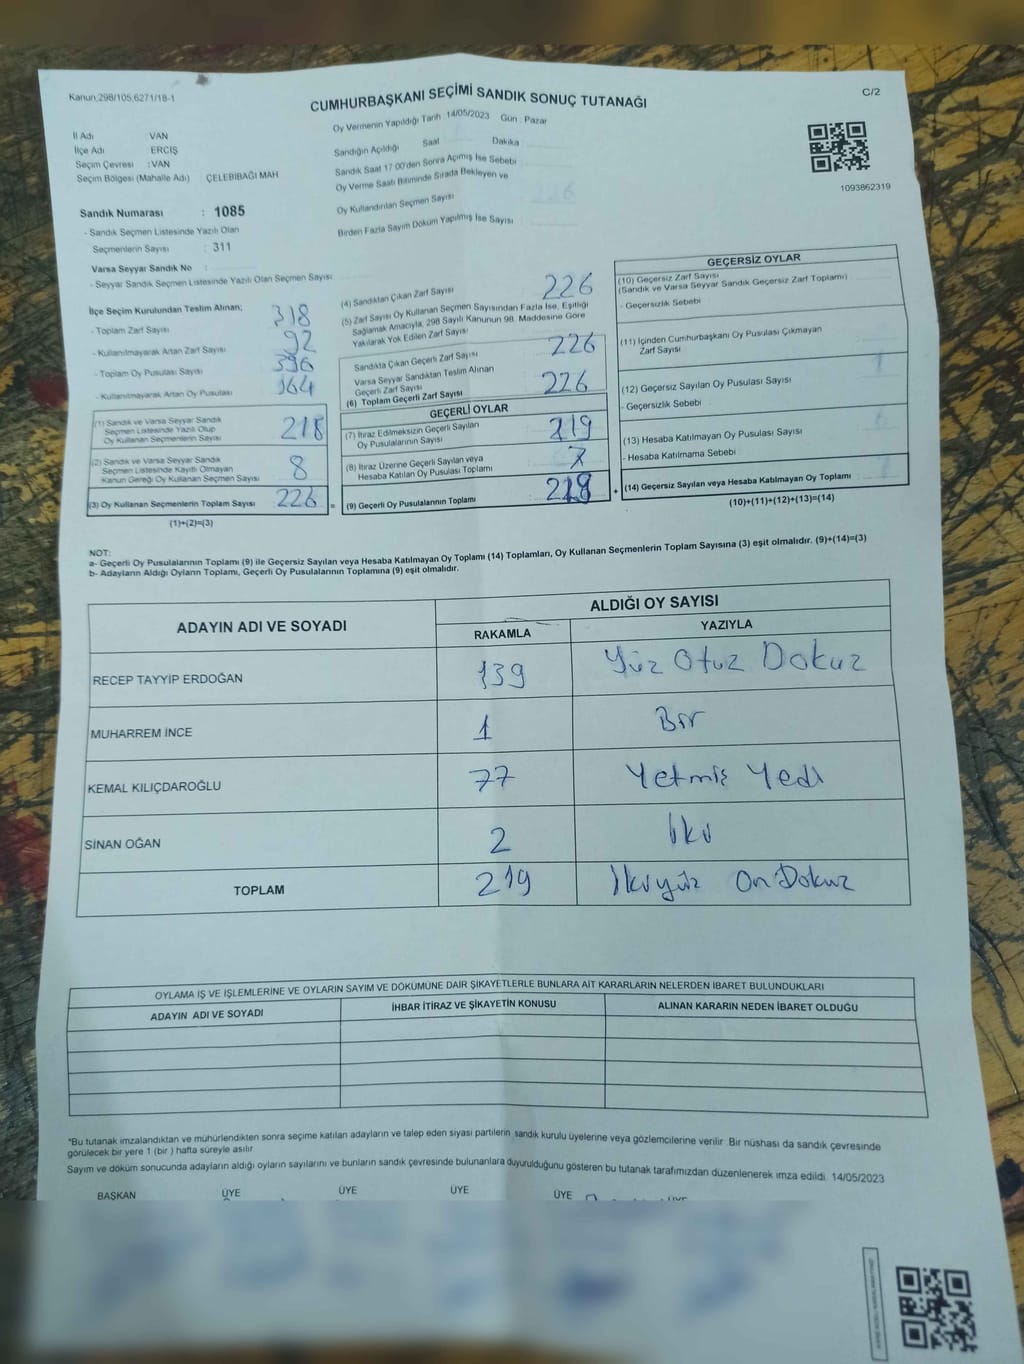 Kanun;298/105,6271/18-1
CUMHURBAŞKANI SEÇİMİ SANDIK SONUÇ TUTANAĞI
C/2
İl Adı VAN
İlçe Adı ERCİŞ
Seçim Çevresi : VAN
Seçim Bölgesi (Mahalle Adı) ÇELEBİBAĞI MAH
Sandık Numarası : 1085
- Sandık Seçmen Listesinde Yazılı Olan
Seçmenlerin Sayısı : 311
Varsa Seyyar Sandık No :
- Seyyar Sandık Seçmen Listesinde Yazılı Olan Seçmen Sayısı
Oy Vermenin Yapıldığı Tarih : 14/05/2023 Gün : Pazar
Sandığın Açıldığı Saat Dakika
Sandık Saat 17:00'den Sonra Açımış İse Sebebi
Oy Verme Saati Bitiminde Sırada Bekleyen ve
Oy Kullandırılan Seçmen Sayısı
Birden Fazla Sayım Döküm Yapılmış İse Sayısı
1093862319
İlçe Seçim Kurulundan Teslim Alınan;
- Toplam Zarf Sayısı 318
- Kullanılmayarak Artan Zarf Sayısı 92
- Toplam Oy Pusulası Sayısı
- Kullanılmayarak Artan Oy Pusulası 164
(1) Sandık ve Varsa Seyyar Sandık
Seçmen Listesinde Yazılı Olup
Oy Kullanan Seçmenlerin Sayısı 218
(2) Sandık ve Varsa Seyyar Sandık
Seçmen Listesinde Kayıtlı Olmayan
Kanun Gereği Oy Kullanan Seçmen Sayısı 8
(3) Oy Kullanan Seçmenlerin Toplam Sayısı 226
(1)+(2)=(3)
(4) Sandıktan Çıkan Zarf Sayısı 226
(5) Zarf Sayısı Oy Kullanan Seçmen Sayısından Fazla İse, Eşitliği
Sağlamak Amacıyla, 298 Sayılı Kanunun 98. Maddesine Göre
Yakılarak Yok Edilen Zarf Sayısı
Sandıkta Çıkan Geçerli Zarf Sayısı 226
Varsa Seyyar Sandıktan Teslim Alınan
Geçerli Zarf Sayısı
(6) Toplam Geçerli Zarf Sayısı 226
GEÇERLİ OYLAR
(7) İtiraz Edilmeksizin Geçerli Sayılan
Oy Pusulalarının Sayısı 219
(8) İtiraz Üzerine Geçerli Sayılan veya
Hesaba Katılan Oy Pusulası Toplamı
(9) Geçerli Oy Pusulalarının Toplamı
GEÇERSİZ OYLAR
(10) Geçersiz Zarf Sayısı
(Sandık ve Varsa Seyyar Sandık Geçersiz Zarf Toplamı)
- Geçersizlik Sebebi
(11) İçinden Cumhurbaşkanı Oy Pusulası Çıkmayan
Zarf Sayısı
(12) Geçersiz Sayılan Oy Pusulası Sayısı
- Geçersizlik Sebebi
(13) Hesaba Katılmayan Oy Pusulası Sayısı
- Hesaba Katılmama Sebebi
(14) Geçersiz Sayılan veya Hesaba Katılmayan Oy Toplamı
(10)+(11)+(12)+(13)=(14)
NOT:
a- Geçerli Oy Pusulalarının Toplamı (9) ile Geçersiz Sayılan veya Hesaba Katılmayan Oy Toplamı (14) Toplamları, Oy Kullanan Seçmenlerin Toplam Sayısına (3) eşit olmalıdır. (9)+(14)=(3)
b- Adayların Aldığı Oyların Toplamı, Geçerli Oy Pusulalarının Toplamına (9) eşit olmalıdır.
ADAYIN ADI VE SOYADI ALDIĞI OY SAYISI
RAKAMLA YAZIYLA
RECEP TAYYİP ERDOĞAN 139 Yüz Otuz Dokuz
MUHARREM İNCE 1 Bir
KEMAL KILIÇDAROĞLU 77 Yetmiş Yedi
SİNAN OĞAN 2 İki
TOPLAM 219 İkiyüz On Dokuz
OYLAMA İŞ VE İŞLEMLERİNE VE OYLARIN SAYIM VE DÖKÜMÜNE DAİR ŞİKAYETLERLE BUNLARA AİT KARARLARIN NELERDEN İBARET BULUNDUKLARI
ADAYIN ADI VE SOYADI İHBAR İTİRAZ VE ŞİKAYETİN KONUSU ALINAN KARARIN NEDEN İBARET OLDUĞU
*Bu tutanak imzalandıktan ve mühürlendikten sonra seçime katılan adayların ve talep eden siyasi partilerin, sandık kurulu üyelerine veya gözlemcilerine verilir. Bir nüshası da sandık çevresinde
görülecek bir yere 1 (bir ) hafta süreyle asılır.
Sayım ve döküm sonucunda adayların aldığı oyların sayılarını ve bunların sandık çevresinde bulunanlara duyurulduğunu gösteren bu tutanak tarafımızdan düzenlenerek imza edildi. 14/05/2023
BAŞKAN ÜYE ÜYE ÜYE ÜYE ÜYE